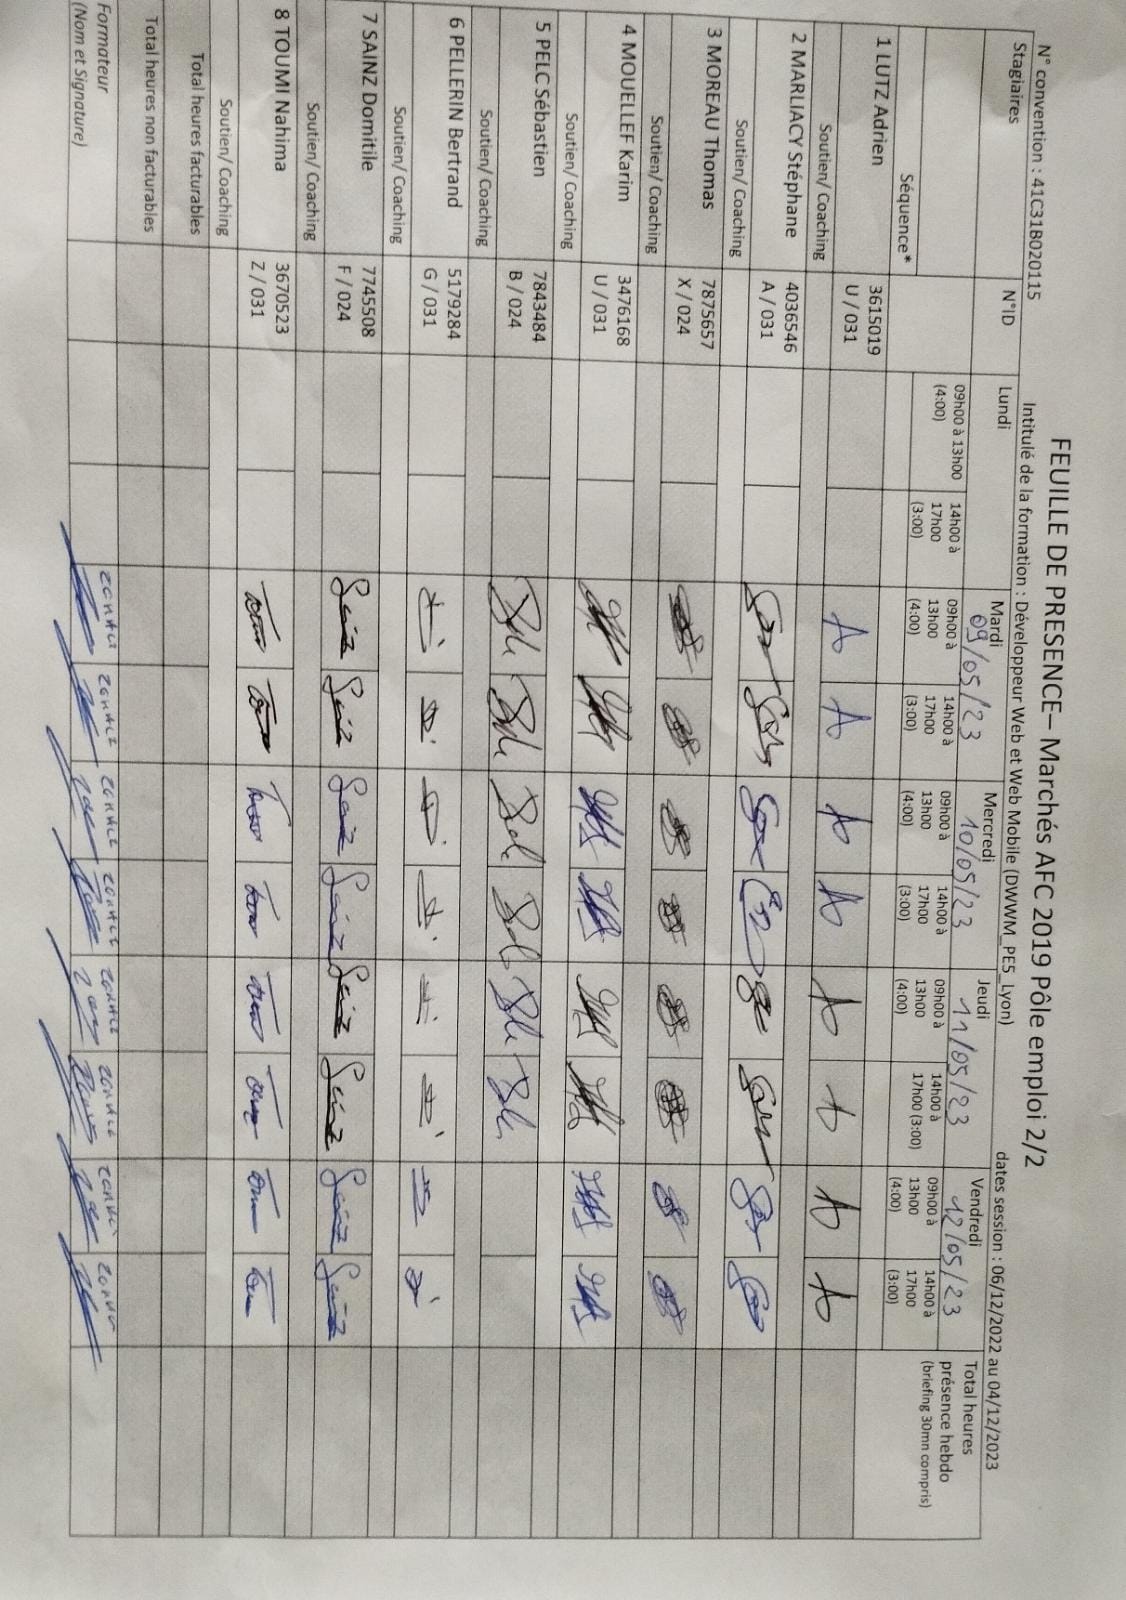 FEUILLE DE PRESENCE– Marchés AFC 2019 Pôle emploi 2/2
N° convention : 41C31B020115
Intitulé de la formation : Développeur Web et Web Mobile (DWWM_PE5_Lyon)
dates session : 06/12/2022 au 04/12/2023
Stagiaires N°ID Lundi Mardi Mercredi Jeudi Vendredi Total heures
09/05/23 10/05/23 11/05/23 12/05/23 présence hebdo
(briefing 30mn compris)
Séquence*
09h00 à 13h00 (4:00)
14h00 à 17h00 (3:00)
09h00 à 13h00 (4:00)
14h00 à 17h00 (3:00)
09h00 à 13h00 (4:00)
14h00 à 17h00 (3:00)
09h00 à 13h00 (4:00)
14h00 à 17h00 (3:00)
09h00 à 13h00 (4:00)
14h00 à 17h00 (3:00)
1 LUTZ Adrien 3615019
U / 031
Soutien/ Coaching
2 MARLIACY Stéphane 4036546
A / 031
Soutien/ Coaching
3 MOREAU Thomas 7875657
X / 024
Soutien/ Coaching
4 MOUELLEF Karim 3476168
U / 031
Soutien/ Coaching
5 PELC Sébastien 7843484
B / 024
Soutien/ Coaching
6 PELLERIN Bertrand 5179284
G / 031
Soutien/ Coaching
7 SAINZ Domitile 7745508
F / 024
Soutien/ Coaching
8 TOUMI Nahima 3670523
Z / 031
Soutien/ Coaching
Total heures facturables
Total heures non facturables
Formateur
(Nom et Signature)